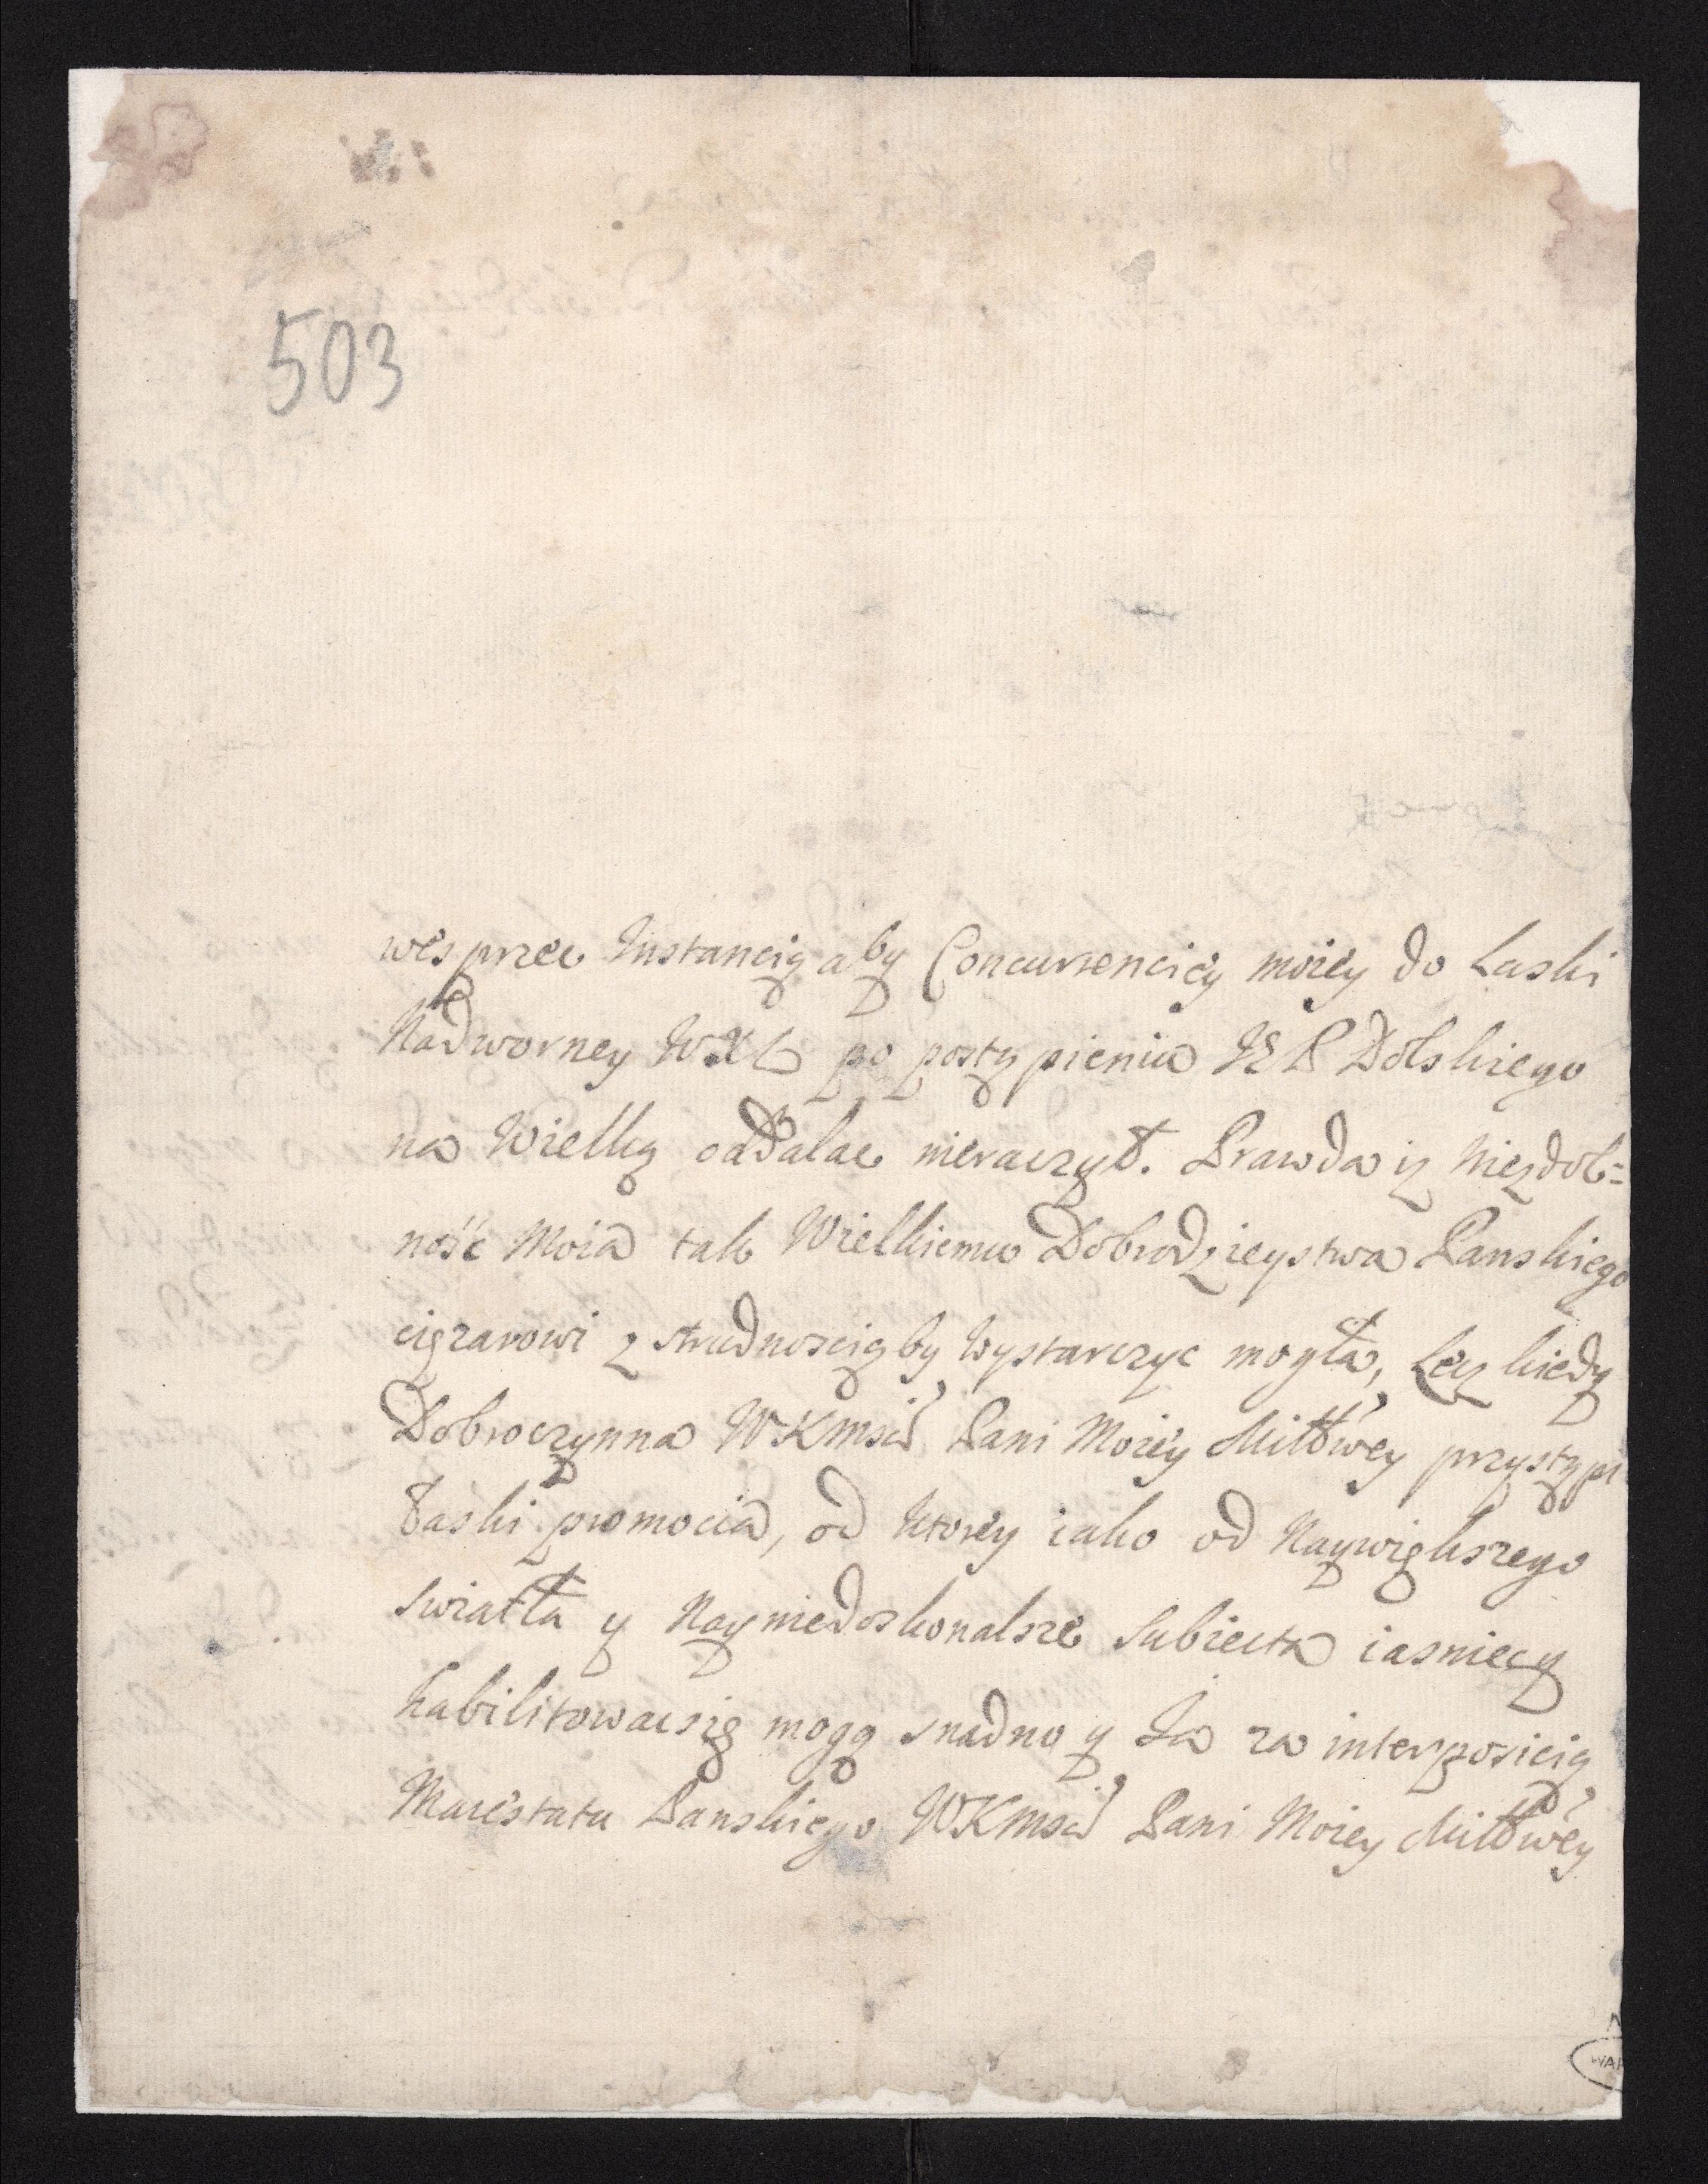 503
wesprzec Instancią aby Concurrencięy moięy do Laski
Nadworney WXL po postąpieniu IE P Dolskiego
na Wielką oddalac nieraczył. Prawda iz Niezdol=
ność Moia tak Wielkiemu Dobrodzieystwa Panskiego
cięzarowi z trudnoscią by wystarczyc mogła, Lecz kiedy
Dobroczynna WKMsci Pani Moiey Miłłwey przystąpi
łaski promocia, od ktorey iako od Naywiększego
Swiatła y Nayniedoskonalsze Subiecta iasniec y
habilitowac się mogą snadno y Ia za interpozicią
Maiestatu Panskiego WKMsci Pani Moiey Miłłwey
WAR